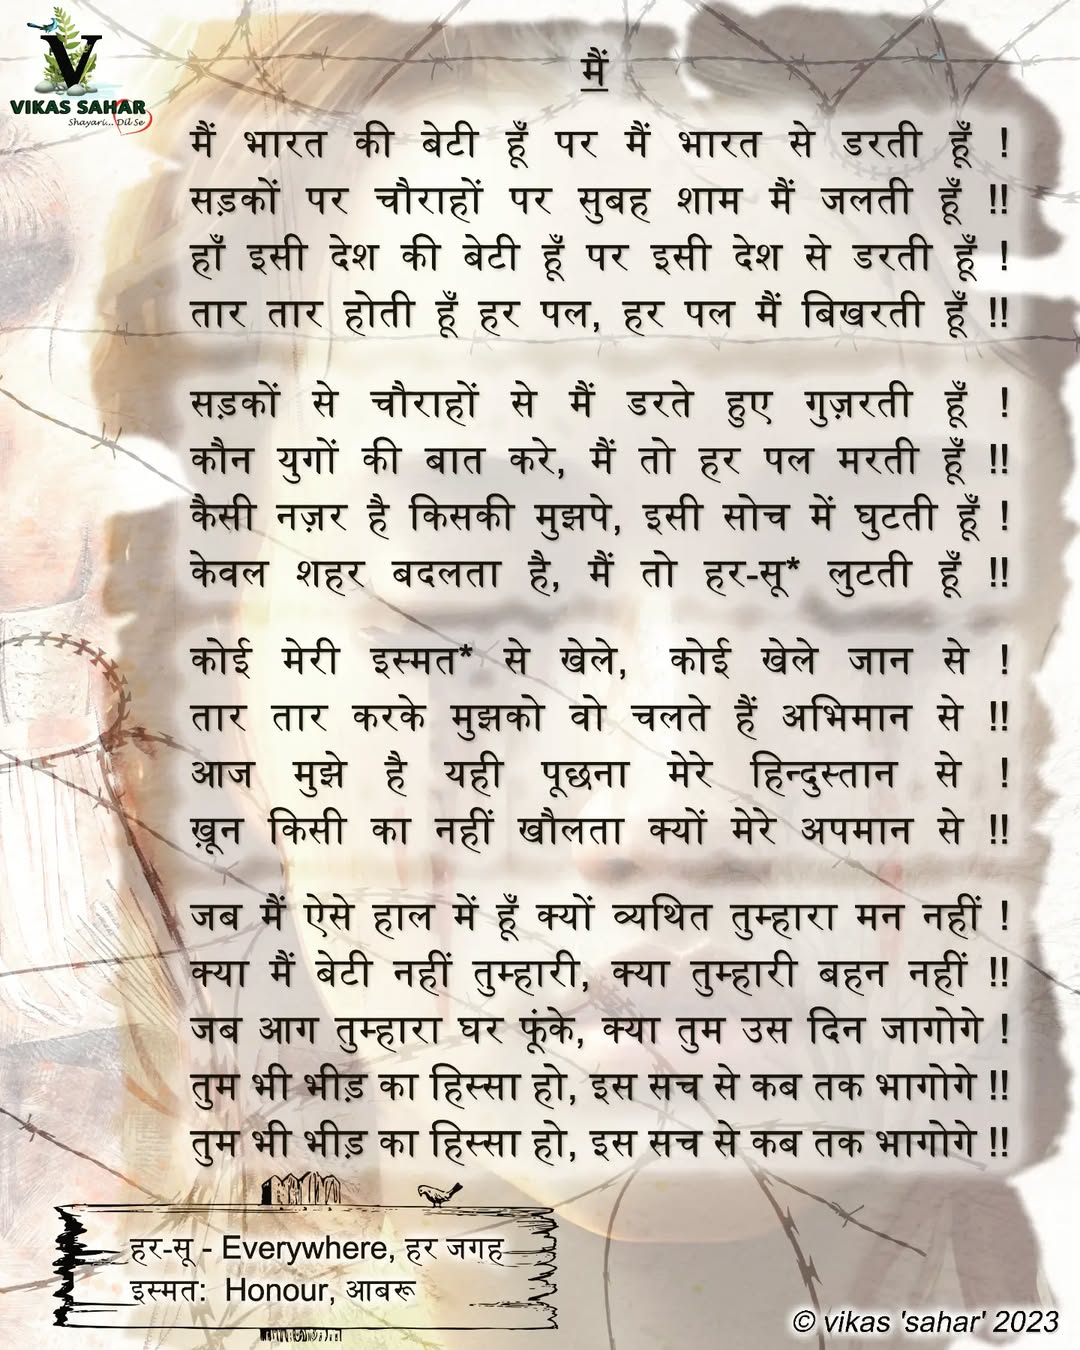 V
VIKAS SAHAR
Shayari... Dil Se
मैं
मैं भारत की बेटी हूँ पर मैं भारत से डरती हूँ !
सड़कों पर चौराहों पर सुबह शाम मैं जलती हूँ !!
हाँ इसी देश की बेटी हूँ पर इसी देश से डरती हूँ !
तार तार होती हूँ हर पल, हर पल मैं बिखरती हूँ !!
सड़कों से चौराहों से मैं डरते हुए गुज़रती हूँ !
कौन युगों की बात करे, मैं तो हर पल मरती हूँ !!
कैसी नज़र है किसकी मुझपे, इसी सोच में घुटती हूँ !
केवल शहर बदलता है, मैं तो हर-सू* लुटती हूँ !!
कोई मेरी इस्मत* से खेले, कोई खेले जान से !
तार तार करके मुझको वो चलते हैं अभिमान से !!
आज मुझे है यही पूछना मेरे हिन्दुस्तान से !
ख़ून किसी का नहीं खौलता क्यों मेरे अपमान से !!
जब मैं ऐसे हाल में हूँ क्यों व्यथित तुम्हारा मन नहीं !
क्या मैं बेटी नहीं तुम्हारी, क्या तुम्हारी बहन नहीं !!
जब आग तुम्हारा घर फूंके, क्या तुम उस दिन जागोगे !
तुम भी भीड़ का हिस्सा हो, इस सच से कब तक भागोगे !!
तुम भी भीड़ का हिस्सा हो, इस सच से कब तक भागोगे !!
हर-सू - Everywhere, हर जगह
इस्मत: Honour, आबरू
© vikas 'sahar' 2023